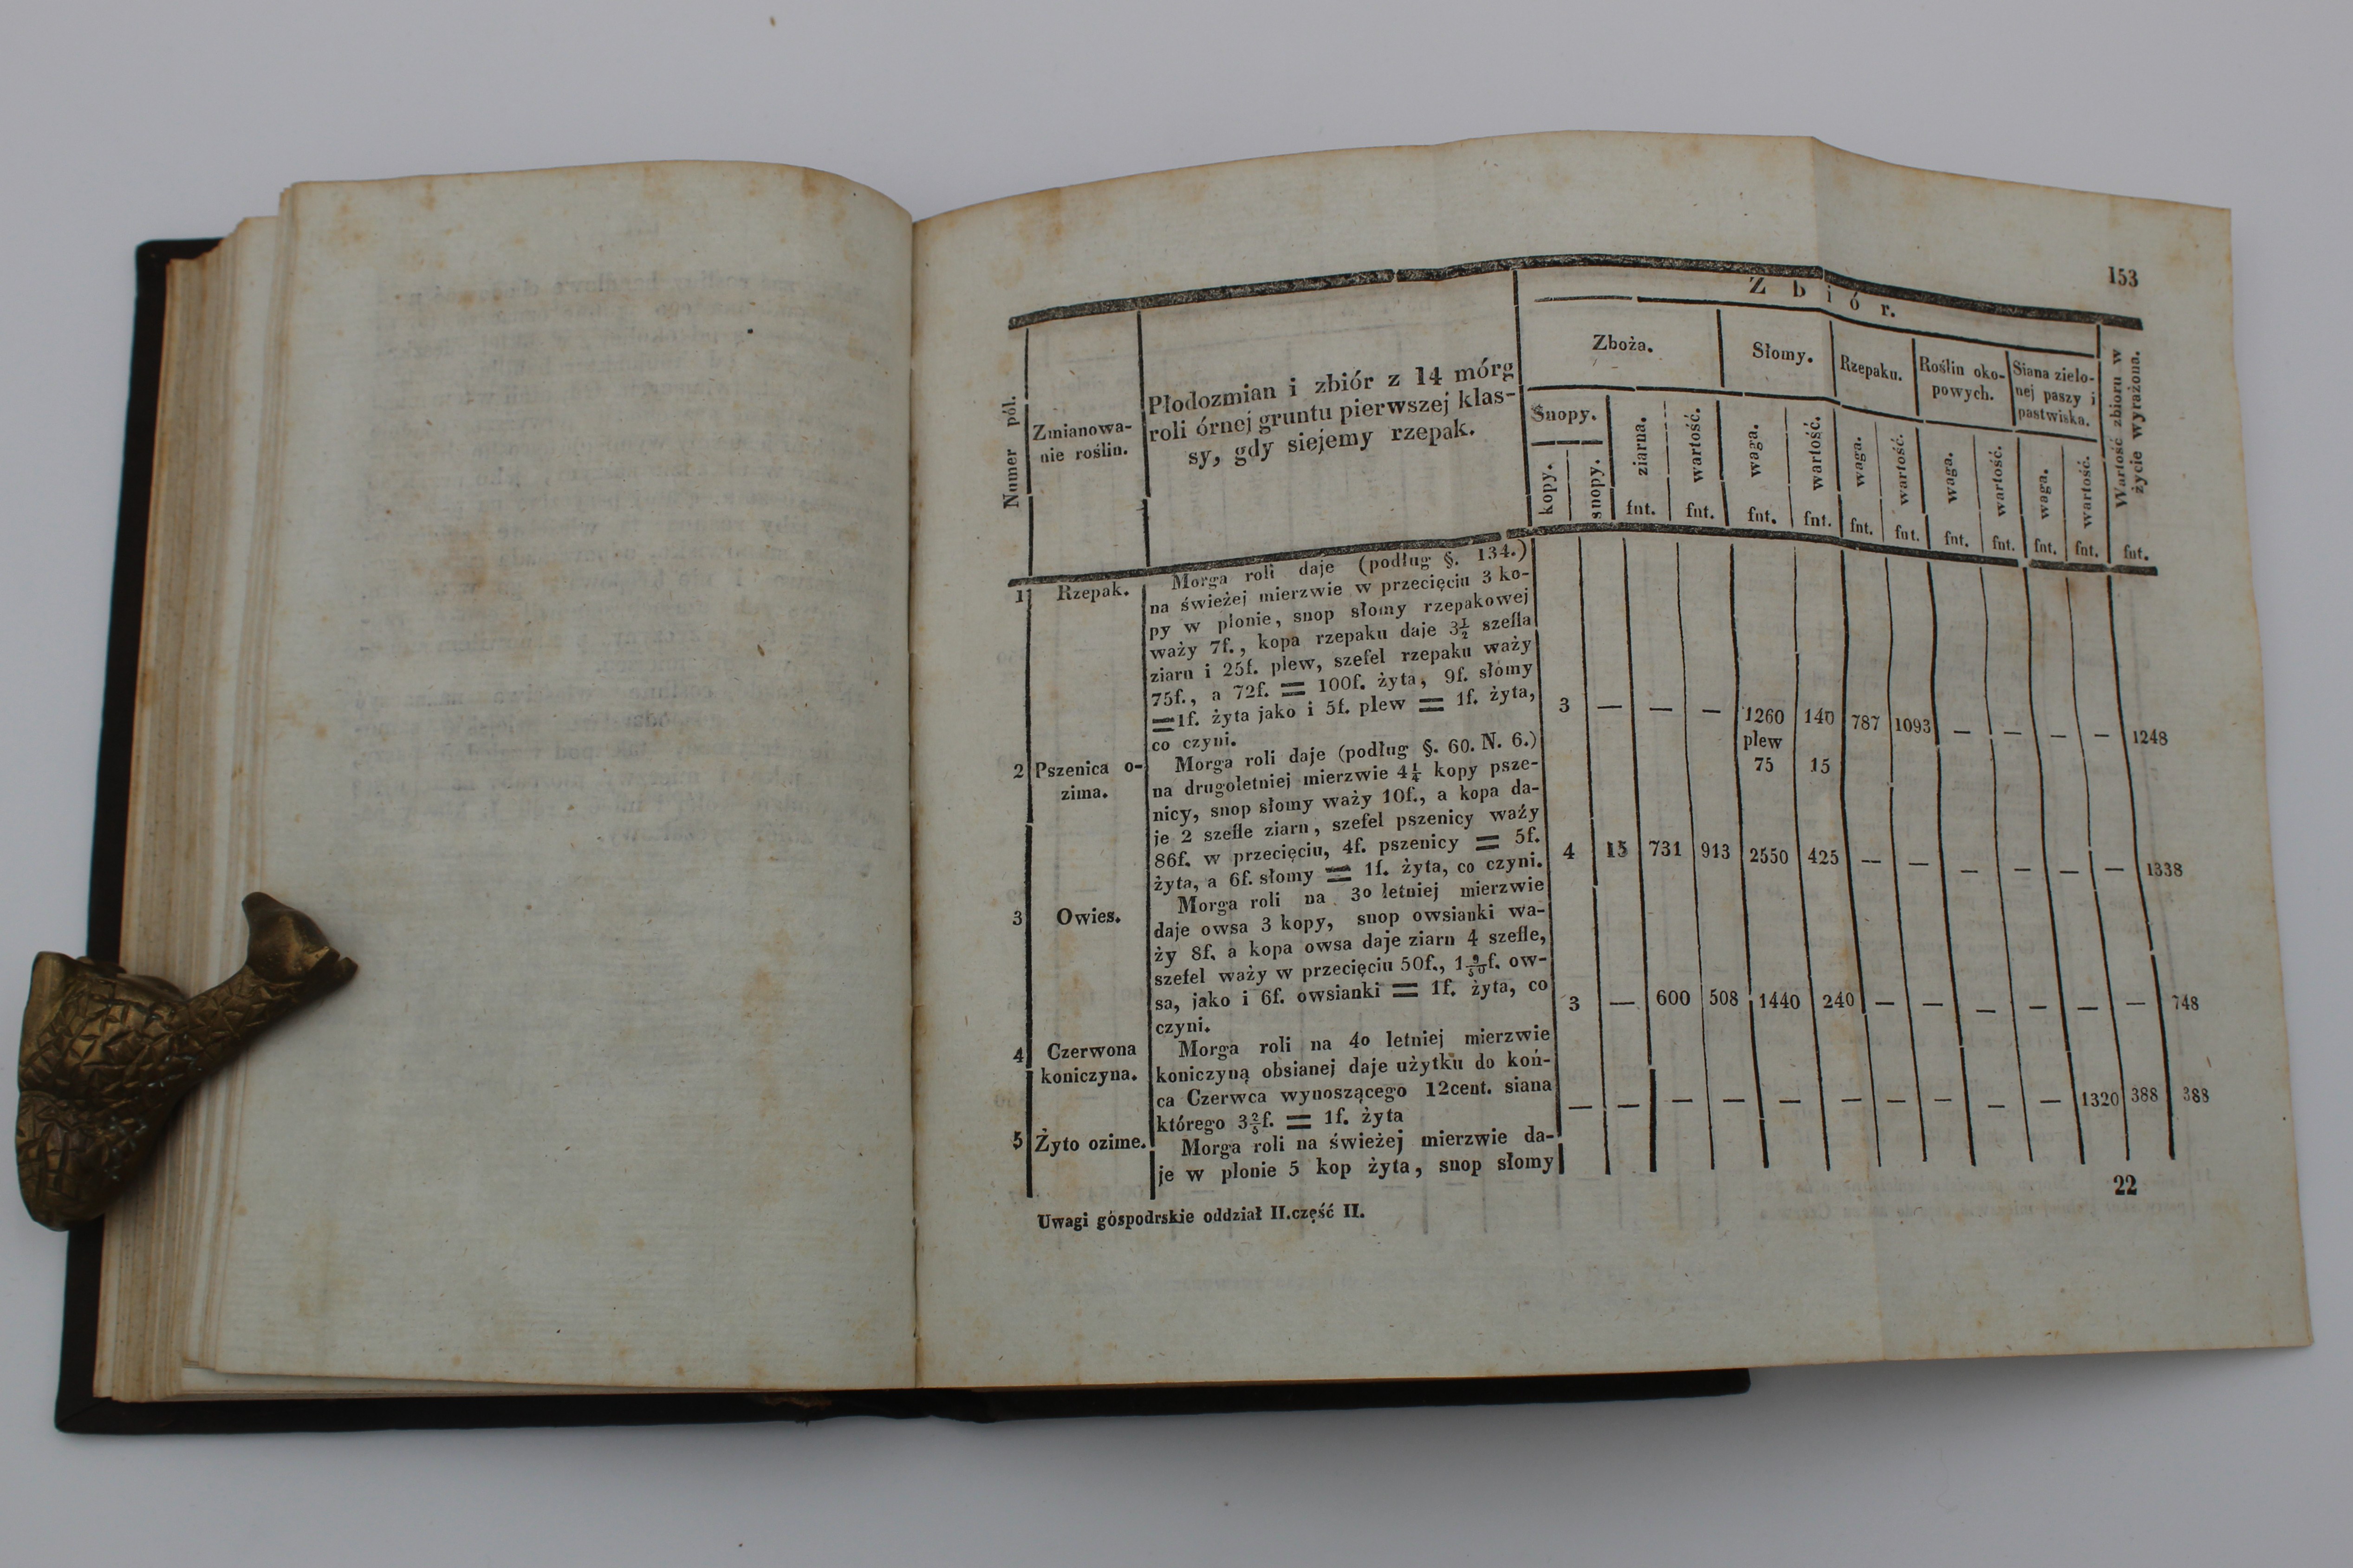 153
Z b i ó r.
Numer pól.
Zmianowa-
nie roślin.
Płodozmian i zbiór z 14 mórg
roli órnej gruntu pierwszej klas-
sy, gdy siejemy rzepak.
Zboża.
Słomy.
Rzepaku.
Roślin oko-
powych.
Siana zielo-
nej paszy i
pastwiska.
Wartość zbioru w
życie wyrażona.
Snopy.
kopy.
snopy.
ziarna.
wartość.
waga.
wartość.
waga.
wartość.
waga.
wartość.
waga.
wartość.
fnt. fnt. fnt. fnt. fnt. fnt. fnt. fnt. fnt. fnt. fnt.
1 Rzepak. Morga roli daje (podług §. 134.)
na świeżej mierzwie w przecięciu 3 ko-
py w plonie, snop słomy rzepakowej
waży 7f., kopa rzepaku daje 3½ szefla
ziarn i 25f. plew, szefel rzepaku waży
75f., a 72f. = 100f. żyta, 9f. słómy
=1f. żyta jako i 5f. plew = 1f. żyta,
co czyni. 3 — — — 1260 140 787 1093 — — — — 1248
plew
75 15
2 Pszenica o- Morga roli daje (podług §. 60. N. 6.)
zima. na drugoletniej mierzwie 4¼ kopy psze-
nicy, snop słomy waży 10f., a kopa da-
je 2 szefle ziarn, szefel pszenicy waży
86f. w przecięciu, 4f. pszenicy = 5f.
żyta, a 6f. słomy = 1f. żyta, co czyni. 4 15 731 913 2550 425 — — — — — — 1338
3 Owies. Morga roli na 3o letniej mierzwie
daje owsa 3 kopy, snop owsianki wa-
ży 8f. a kopa owsa daje ziarn 4 szefle,
szefel waży w przecięciu 50f., 1 9/50f. ow-
sa, jako i 6f. owsianki = 1f. żyta, co
czyni. 3 — 600 508 1440 240 — — — — — — 748
4 Czerwona Morga roli na 4o letniej mierzwie
koniczyna. koniczyną obsianej daje użytku do koń-
ca Czerwca wynoszącego 12cent. siana
którego 3⅖f. = 1f. żyta — — — — — — — — — — 1320 388 388
5 Żyto ozime. Morga roli na świeżej mierzwie da-
je w plonie 5 kop żyta, snop słomy
22
Uwagi góspodrskie oddział II.część II.